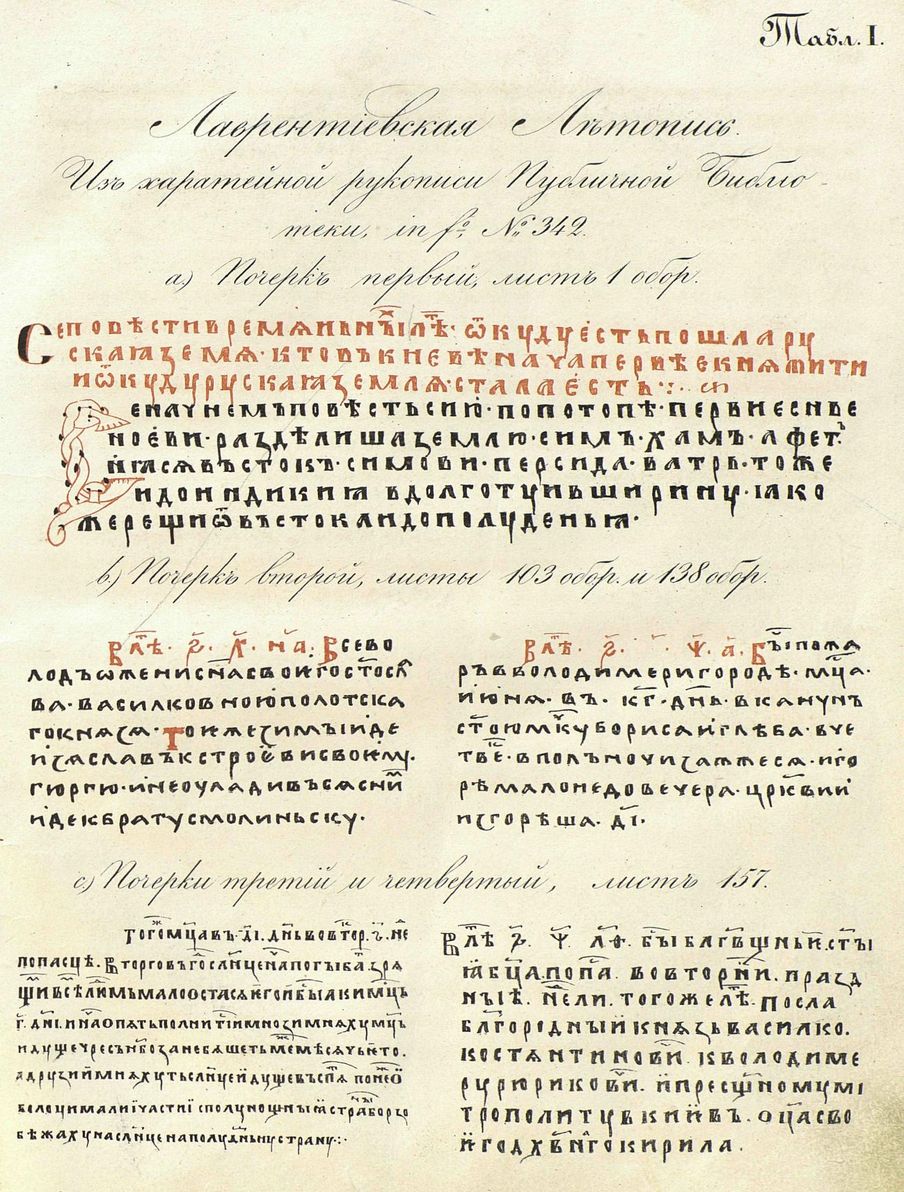 Табл. I.
Лаврентіевская Лѣтопись.
Изъ харатейной рукописи Публичной Библіо-
теки, in fº, № 342.
a) Почеркъ первый, листъ 1 обор.
Се повѣсти времѧньны҇х лѣ҇т · ѿкуду єсть пошла ру
скаꙗ земѧ · кто въ києвѣ нача первѣе кнѧжити
и ѿкуду рускаꙗ землѧ стала єсть ⁘
Се начнемъ повѣсть сию · по потопѣ · первиє снве
ноєви · раздѣлиша землю · симъ · хамъ · афет ·
и ꙗсѧ въстокъ · симови · персида · ватрь · тоже
и до индикиꙗ в долготу и в ширину · ꙗко
же рещи ѿ въстока и до полуденьꙗ ·
b.) Почеркъ второй, листы 103 обор. и 138 обор.
В лѣ҇т · ҂ѕ҃ · х҃ · на҃ · Всево
лодъ ѡжени сн҃а своѥго ст҃осл
ва · василковною полотска
го кнѧзѧ · Тои же зимы иде
изѧславъ к строєви своѥму ·
гюргю · и не оуладивъсѧ с ни҇м
иде к брату смолиньску ·
В лѣ҇т · ҂ѕ҃ · ѱ҃ · а҃ · Бы҇с пожа
ръ в володимери городѣ · мц҃а ·
июнѧ · въ · кг҃ · дн҃ь · в канунъ
ст҃ою мч҃ку бориса и глѣба · в че
твє · в полъночи зажжесѧ · и го
рѣ мало не до вечера · цр҃квии
изгорѣша · ді҃ ·
c) Почерки третій и четвертый, листъ 157.
тогож мц҃а въ · ді҃ · дн҃ь во втор · г҃ · не
по пасцѣ · В торговъ го сл҃нце нача погыбати зрѧ
щи҇м всѣ҇м людмъ мало остасѧ ѥго и бы҇с аки мц҃ь
г҃ · дн҃і · и нача опѧть полнитисѧ и мнози мнѧху мц҃ь
идуще чресъ нб҃о зане бѧшеть межимѣсѧчьє то ·
а друзии мнѧхуть сл҃нце идуще въспѧть понеже ѡ
болоци малиі части і с полунощныꙗ страны борзо
бѣжаху на сл҃нце на полуднь҃ную страну ⁘
В лѣ҇т · ҂ѕ҃ · ѱ҃ · лѳ҃ · Бы҇с блг҃вщньѥ ст҃ыꙗ
бц҃а · по пасцѣ · во вторни҇к · празд
ныѣ · нд҃ли · того же лѣ҇т · Посла
блг҃ородныи кнѧзь василко ·
костѧнтинови҇ч · к володиме
ру рюрикови҇ч · и пресщ҃ному ми
трополиту в киѥвъ · оц҃а сво
ѥго дх҃внаго кирила ·